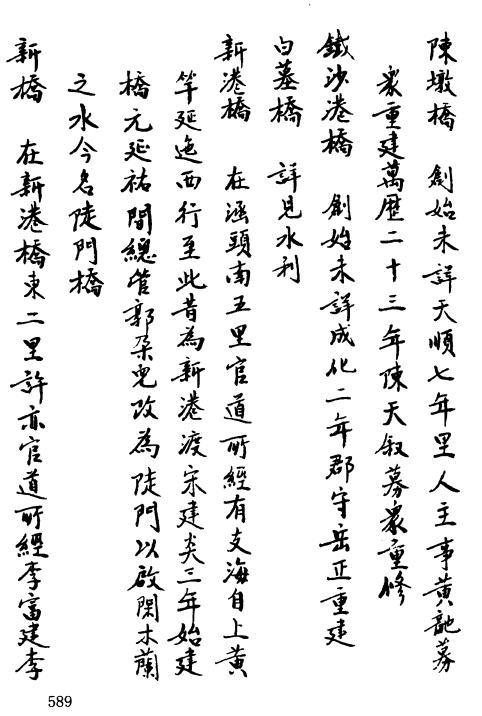 陳墩橋　創始未詳天順七年里人主事黃訑募
衆重建萬歷二十三年陳天叙募衆重修
鐵沙港橋　創始未詳成化二年郡守岳正重建
白墓橋　詳見水利
新港橋　在涵頭南五里官道所經有支海自上黃
竿延迤西行至此昔為新港渡宋建炎三年始建
橋元延祐間總管郭朶兒改為陡門以啟閑木蘭
之水今名陡門橋
新橋　在新港橋東二里許亦官道所經李富建李
589